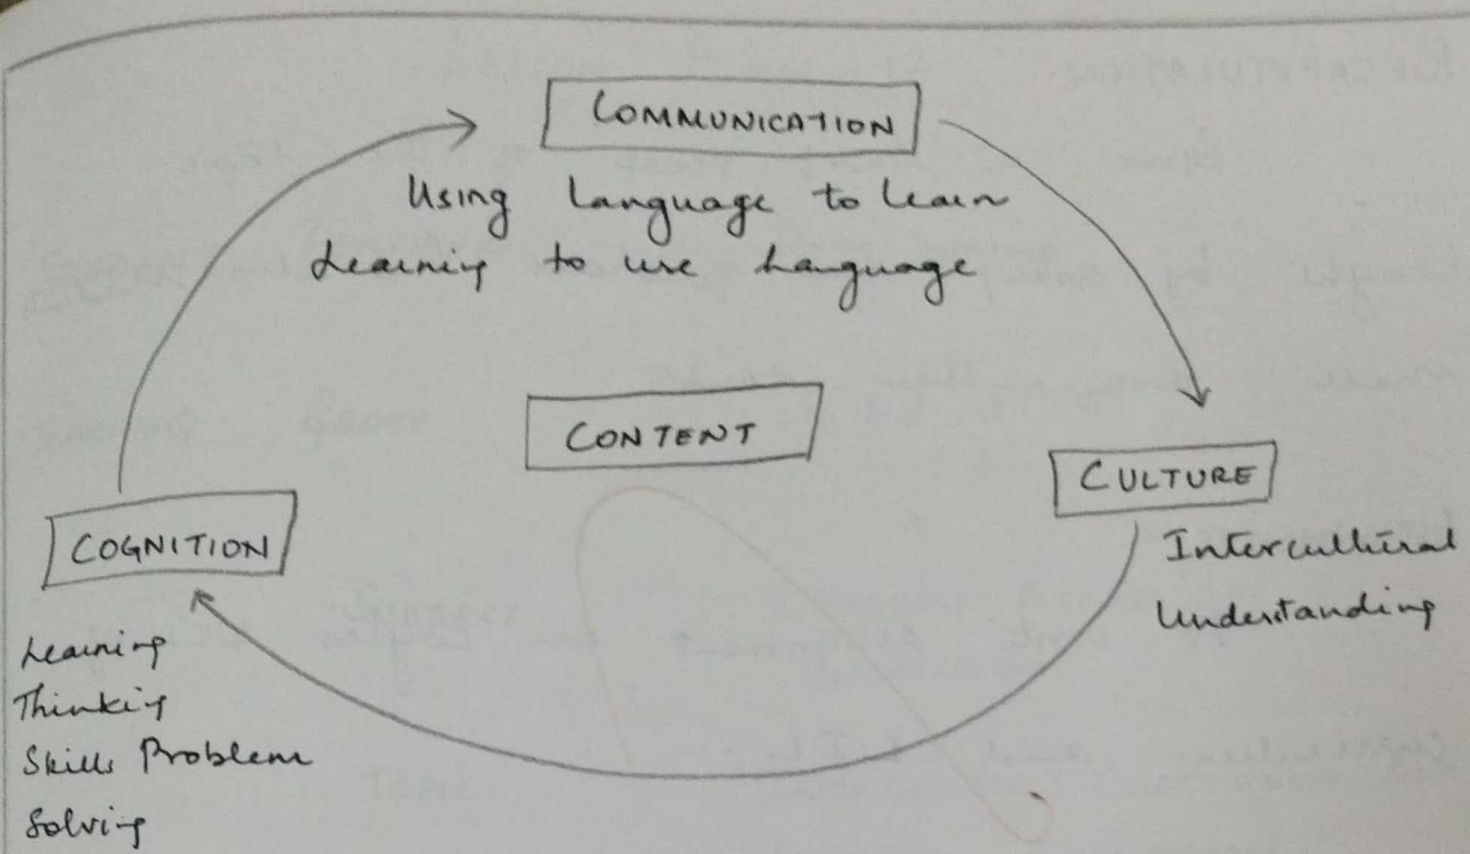 COMMUNICATION
Using Language to learn
Learning to use Language
CONTENT
CULTURE
Intercultural
Understanding
COGNITION
Learning
Thinking
Skills Problem
Solving